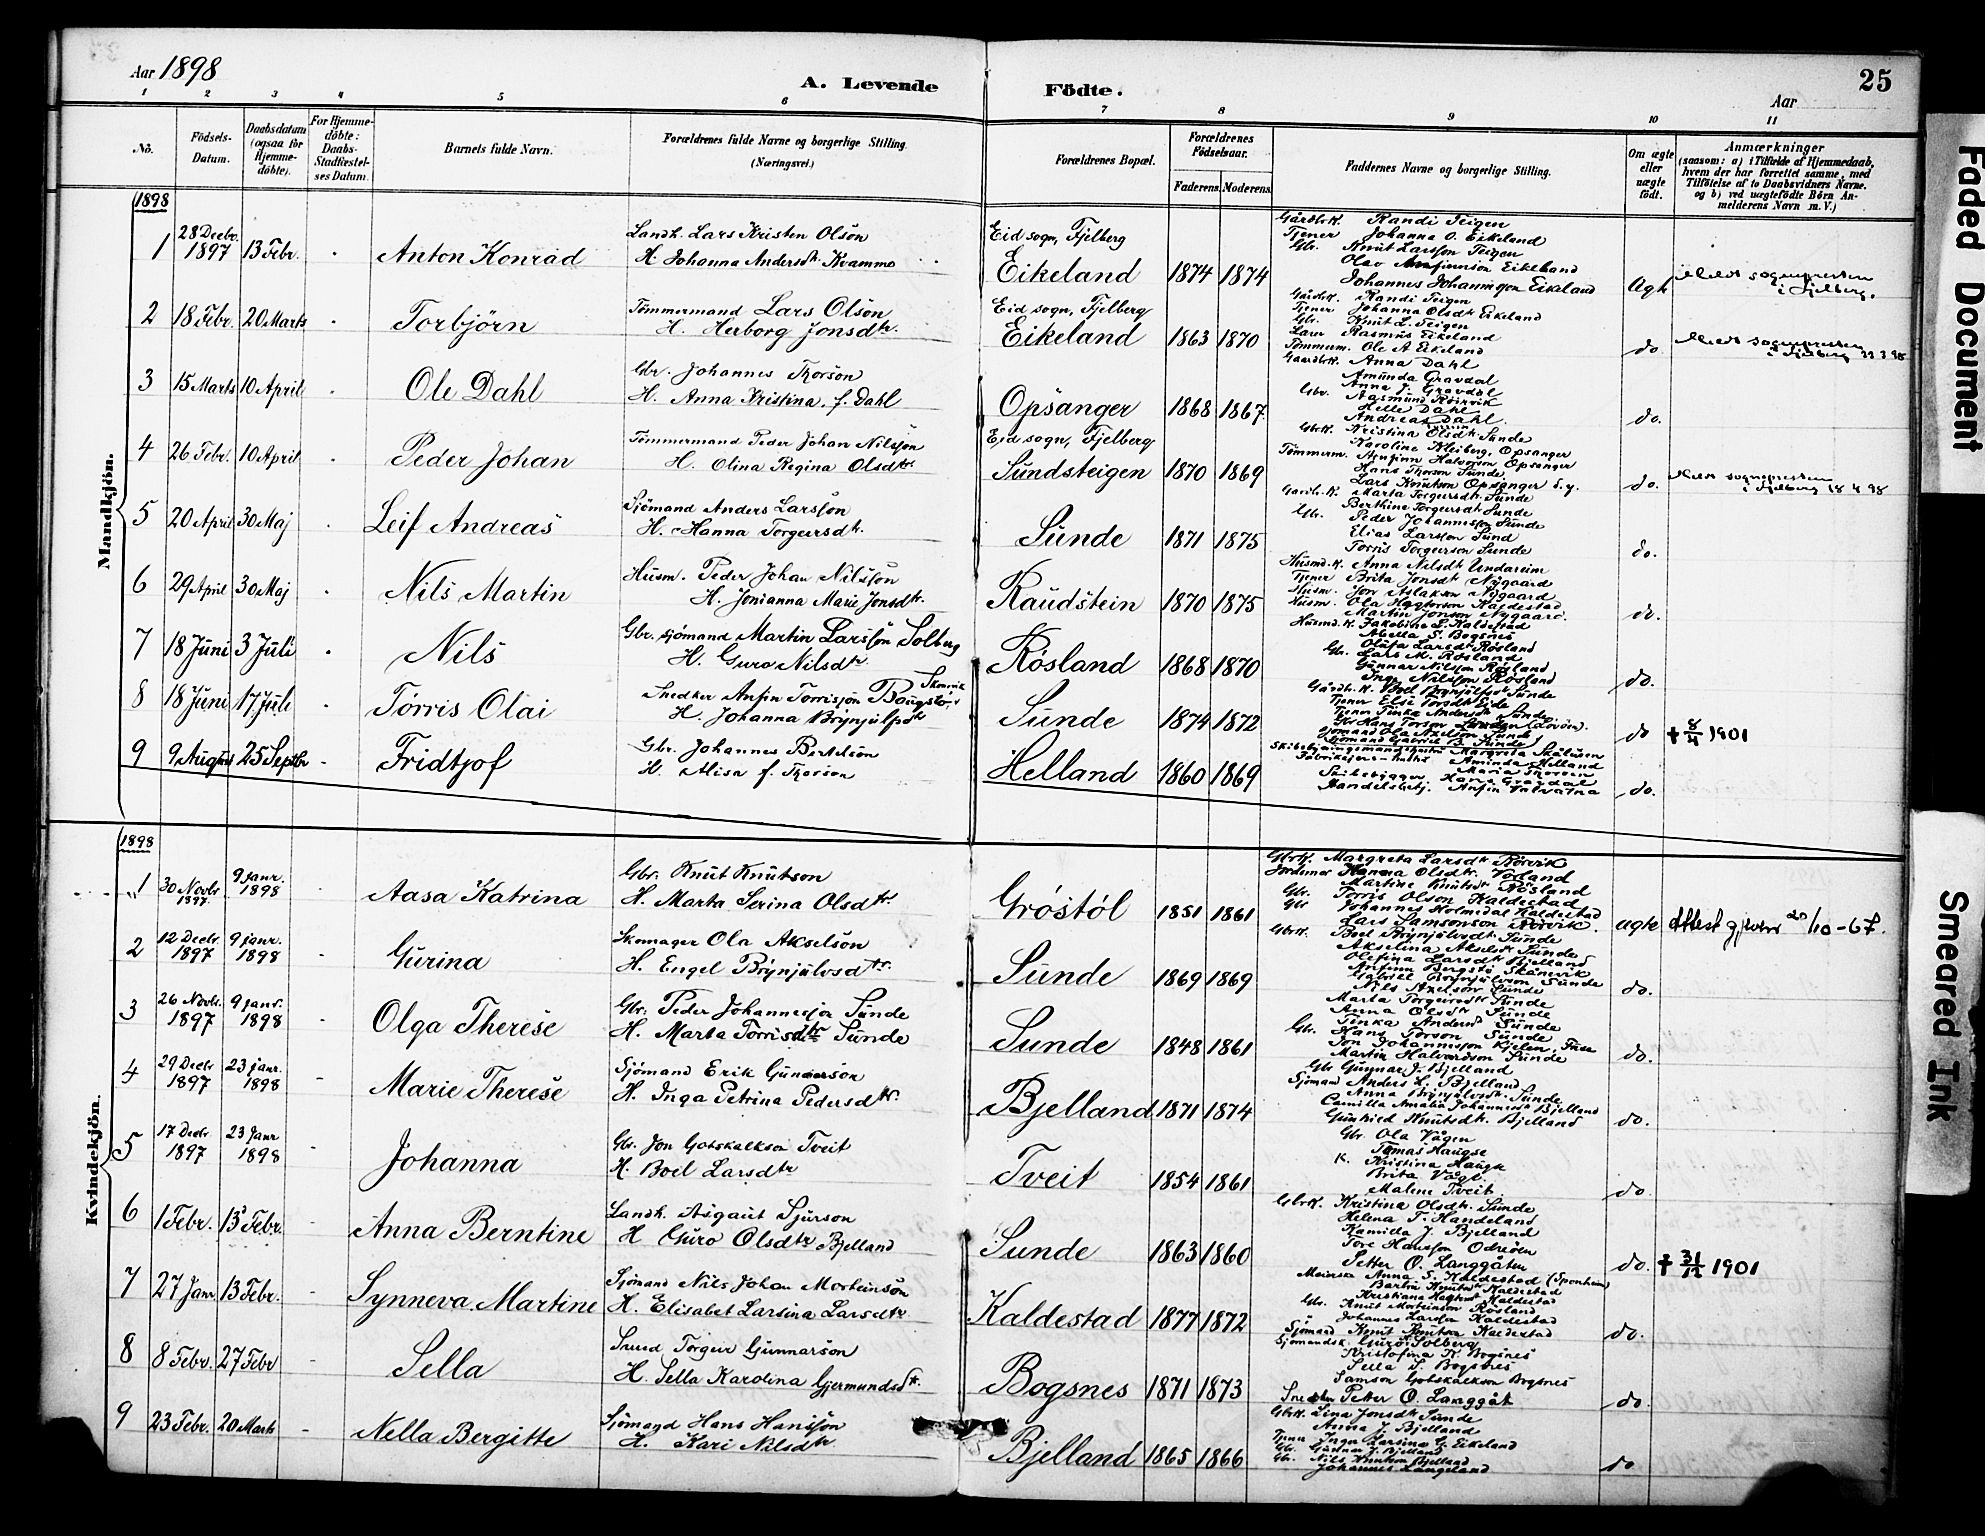 Aar 1898
A. Levende
Födte.
Aar
25
1 2 3 4 5 6 7 8 9 10 11
No.
Födsels-Datum.
Daabsdatum (ogsaa för Hjemme-döbte).
For Hjemme-döbte: Daabs-Stadfæstel-ses Datum.
Barnets fulde Navn.
Forældrenes fulde Navne og borgerlige Stilling. (Næringsvei.)
Forældrenes Bopæl.
Forældrenes Födselsaar.
Faderens. Moderens.
Faddernes Navne og borgerlige Stilling.
Om ægte eller uægte födt.
Anmærkninger
(saasom: a) i Tilfælde af Hjemmedaab,
hvem der har forrettet samme, med
Tilföielse af to Daabsvidners Navne.
og b) ved uægtefödte Börn An-
melderens Navn m. V.)
Mandkjön.
1898
1 28 Decbr. 1897 13 Febr. Anton Konrad
Landh. Lars Kristen Olsön
H. Johanna Andersdtr. Kvamme
Eid sogn, Fjelberg
Eikeland 1874 1874
Gårdbr.K. Randi Teigen
Tjener Johanna O. Eikeland
Gbr. Knut Larssön Teigen
Johannes Johannesson Eikeland
Ægte Meldt sognepresten
i Fjelberg.
2 18 Febr. 20 Marts Torbjörn
Tömmermand Lars Olsön
H. Herborg Jonsdtr.
Eid sogn, Fjelberg
Eikeland 1863 1870
Gårdbr.K. Randi Teigen
Tjener Johanna Olsdtr Eikeland
Gbr. Knut L. Teigen
Rasmus Eikeland
Tömmerm. Ole A Eikeland
do. Meldt sognepresten
i Fjelberg 22.3.98
3 15 Marts 10 April Ole Dahl
Gbr. Johannes Thorsön
H. Anna Kristina, f. Dahl
Opsanger 1868 1867.
Gaardbr.K. Anna Dahl
Amunda Gravdal
Anna J. Gravdal
Gbr. Aasmund Röirvik
Helle Dahl
Andreas Dahl.
do.
4 26 Febr. 10 April Peder Johan
Tömmermand Peder Johan Nilssön
H. Olina Regina Olsdtr.
Eid sogn, Fjelberg
Sundsteigen 1870 1869
Gbr.K. Kristina Olsdtr Sunde
Karoline Kleiberg, Opsanger
Tömmerm. Arnfinn Halvorson Opsanger
Hans Thorson Sunde
Lars Knutson Opsanger d.y.
do. Meldt sognepresten
i Fjelberg 18 4 98
5 20 April 30 Maj Leif Andreas
Sjömand Anders Larssön
H. Hanna Torgersdtr.
Sunde 1871 1875
Gardbr.K. Marta Torgersdtr. Sunde
Berthine Torgersdtr Sunde
Gbr. Peder Johannesson Sunde
Elias Larsson Sund
Torris Torgerson Sunde
do.
6 29 April 30 Maj Nils Martin
Husm. Peder Johan Nilssön
H. Jonianna Marie Jonsdtr.
Raudstein 1870 1875
Husmd.K. Anna Nilsdtr Undarum
Tjener Brita Jonsdtr Nygaard
Husm. Jon Aslakson Nygaard
Husm. Ola Kaldestad
Martin Jonson Nygaard.
do.
7 18 Juni 3 Juli Nils
Gbr. sjömand Martin Larssön Solberg
H. Guro Nilsdtr.
Rösland 1868 1870
Husmd.K. Jakobine L. Kaldestad
Abella S. Bogsnes
Olufa Larsdtr Rösland
Gbr. Lars M. Rösland
Gunnar Nilsson Rösland
Inge Nilsson Rösland
do.
8 18 Juni 17 Juli Törris Olai
Snedker Anfin Torrissön Bergstö, Skonevik
H. Johanna Brynjulfsdtr
Sunde 1874 1872
Gårdbr.K. Boel Brynjulfsdtr Sunde
Tjener Else Torsdtr Eide
Tjener Tinka Andersdtr Sunde
Gbr Hans Torson
Sjömand Ola Axelson Sunde
Sjömand Gabriel B. Sunde
do ✝ 8/4 1901
9 9 August 25 Septbr Fridtjof
Gbr. Johannes Bertelson
H. Alisa f. Thorson
Helland 1860 1869
Margreta Skåluren
Aminda Helland
Maria Thorson
Skibsbygger Hans Gravdal
Handelsbetj. Anfin Valvatna
do.
Kvindekjön.
1898
1 30 Novbr. 1897 9 janr. 1898 Aasa Katrina
Gbr. Knut Knutson
H. Marta Serina Olsdtr.
Gröstöl 1851 1861
Gbr.K. Margreta Larsdtr Rörvik
Jordemor Hanna Olsdtr. Vorland
Martine Knutsdtr Rösland
Gbr. Torris Olson Kaldestad
Gbr Johannes Holmedal Kaldestad
Lars Samsonson Rörvik.
ægte Attest gjeven 20/10-67.
2 12 Decbr. 1897 9 janr. 1898 Gurina
Skomager Ola Akselson
H. Engel Brynjulvsdtr.
Sunde 1869 1869
Gbr.K. Boel Brynjulvsdtr. Sunde
Akselina Akselsdtr Sunde
Olefina Larsdtr Bjelland
Anfinn Bergstö Skånevik
Gabriel Brynjulvson Sunde
Nils Axelson Sunde
do.
3 26 Novbr. 1897 9 janr. 1898 Olga Therese
Gbr. Peder Johannessön Sunde
H. Marta Torrisdtr Sunde
Sunde 1848 1861
Marta Torgersdtr Sunde
Anna Olsdtr Sunde
Tinka Andersd Sunde
Gbr. Hans Torson Sunde
Jon Johannesson Kjelen, Füse
Martin Halvordson Sunde
do.
4 29 Decbr 1897 23 janr. 1898 Marie Therese
Sjömand Erik Gunderson
H. Inga Petrina Pedersdtr.
Bjelland 1871 1874
Gbr Gunnar J. Bjelland
Sjömand Anders L. Bjelland
Anna Brynjulvsdtr. Sunde
Camilla Amalia Johannesd Bjelland
Gunhild Knutsdtr. Bjelland
do.
5 17 Decbr 1897 23 Janr 1898 Johanna
Gbr. Jon Gotskalkson Tveit
H. Boel Larsdtr
Tveit 1854 1861
Gbr Ola Vågen
Tomas Haugse
K. Kristina Haugse
Brita Våge
Malene Tveit
do.
6 1 Febr. 13 Febr. Anna Berntine
Landh. Asgaut Sjurson
H Guro Olsdtr Bjelland
Sunde 1863 1860
Gbr.K. Kristina Olsdtr. Sunde
Helena T. Handeland
Kamilla J. Bjelland
Tore Hansson Odreöen
Petter O. Langgåten
do. ✝ 31/12 1901
7 27 Jan 13 Febr. Synneva Martine
Sjömand Nils Johan Morteinsön
H. Elisabet Larsina Larsdtr
Kaldestad 1877 1872
Anna S. Kaldestad (Sponheim)
Kaldestad
Kristiana Kaldestad
Gbr. Knut Morteinson Rösland
Johannes Larson Kaldestad
Sjömand Knut Knutson Kaldestad
do.
8 8 Febr. 27 Febr Sella
Smed Torger Gunnarson
H. Sella Karolina Gjermundsdtr.
Bogsnes 1871 1873
Sjömandsk. Guro Solberg
Kristofina K. Bogsnes
Sella S. Bogsnes
Samson Gotskalkson Bogsnes
Snedker Petter O. Langgåt
do
9 23 Febr. 20 Marts Nella Bergitte
Sjömand Hans Hanssön
H. Kari Nilsdtr
Bjelland 1865 1866
Gbr.K. Lina Jonsdtr Sunde
Anna J. Bjelland
Tjener Inger Larsine G. Eikeland
Gbr. Gunnar J. Bjelland
Gbr. Nils Knutson Bjelland
Johannes Langeland
do
Faded Document
Smeared Ink